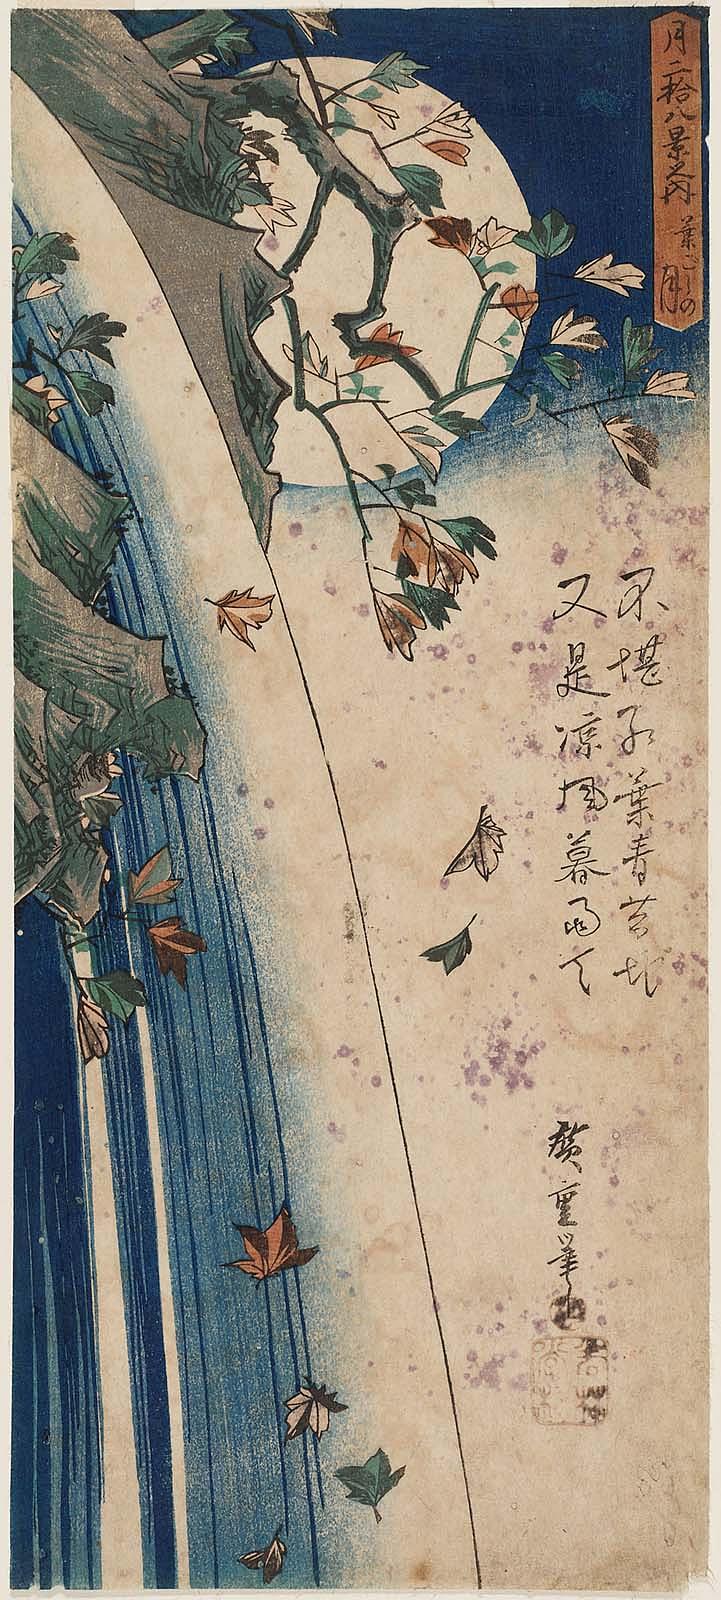 月二拾八景之内
葉ごしの月
不堪紅葉青苔地
又是凉風暮雨天
廣重筆